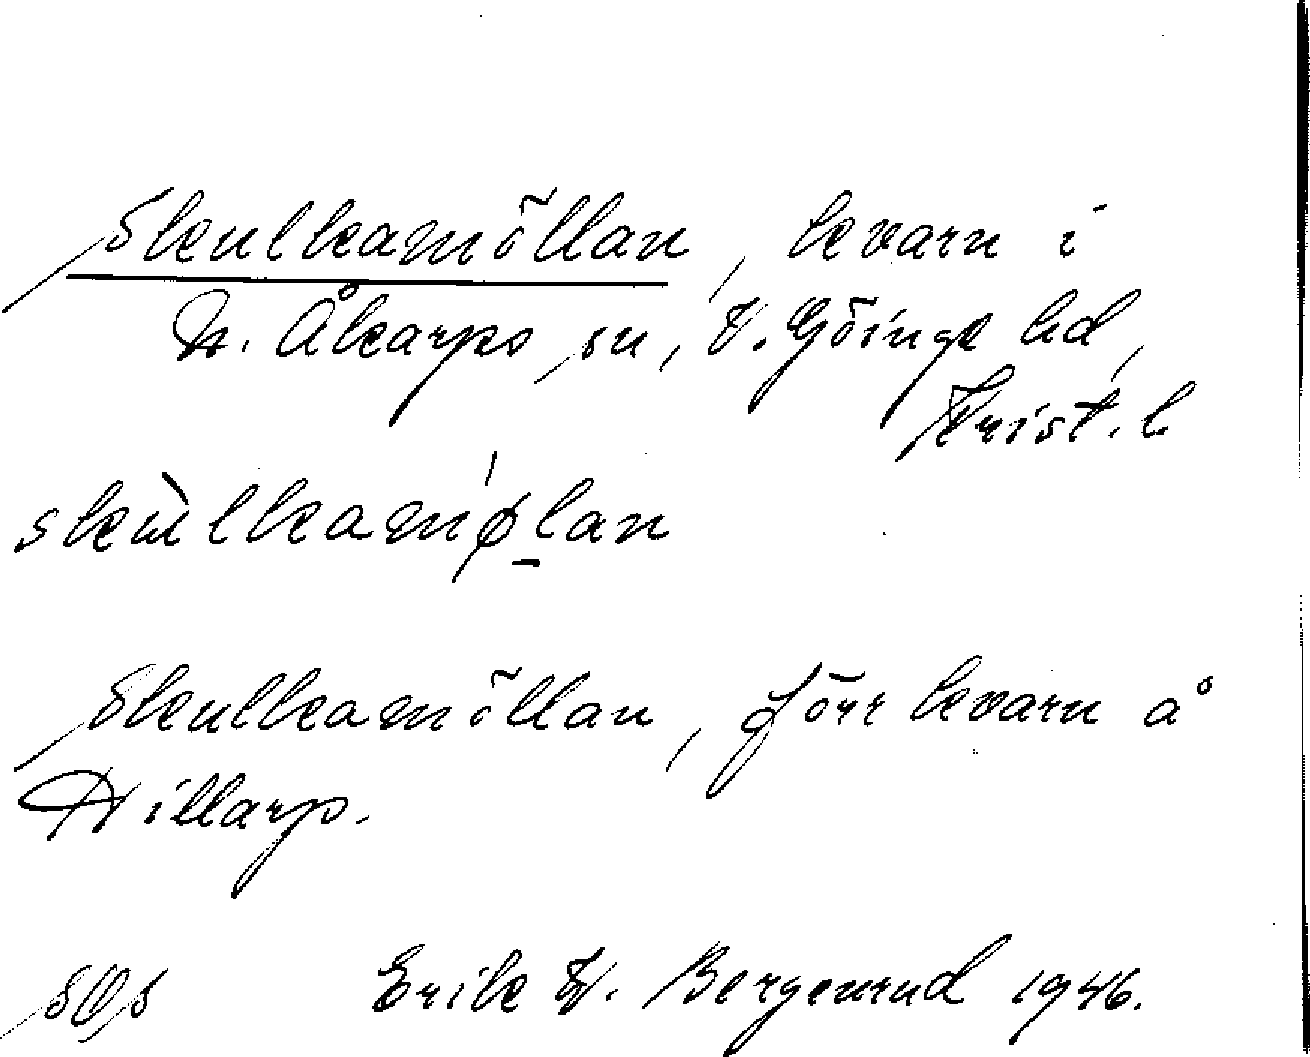 Skulkamöllan, kvarn i
N. Åkarps sn, V. Göinge hd,
Krist. l.
skùlkamǿlan
Skulkamöllan, förr kvarn å
Hillarp.
SOS Erik W. Bergenrud 1946.